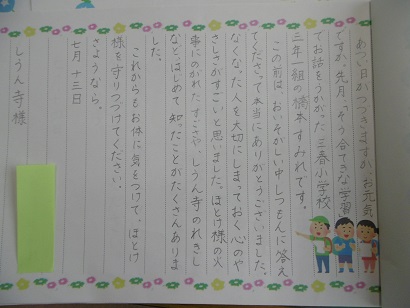 あつい日がつづきますが、お元気
ですか。先月、「そう合てきな学習」
でお話をうかがった三春小学校
三年一組の橋本すみれです。
この前は、おいそがしい中しつもんに答え
てくださって本当にありがとうございました。
なくなった人を大切にしまっておく心のや
さしさがすごいと思いました。ほとけ様の火
事にのがれたすごさや、しうん寺のれきし
など、はじめて知ったことがたくさんありま
した。
これからもお体に気をつけて、ほとけ
様を守りつづけてください。
さようなら。
七月十三日
しうん寺様